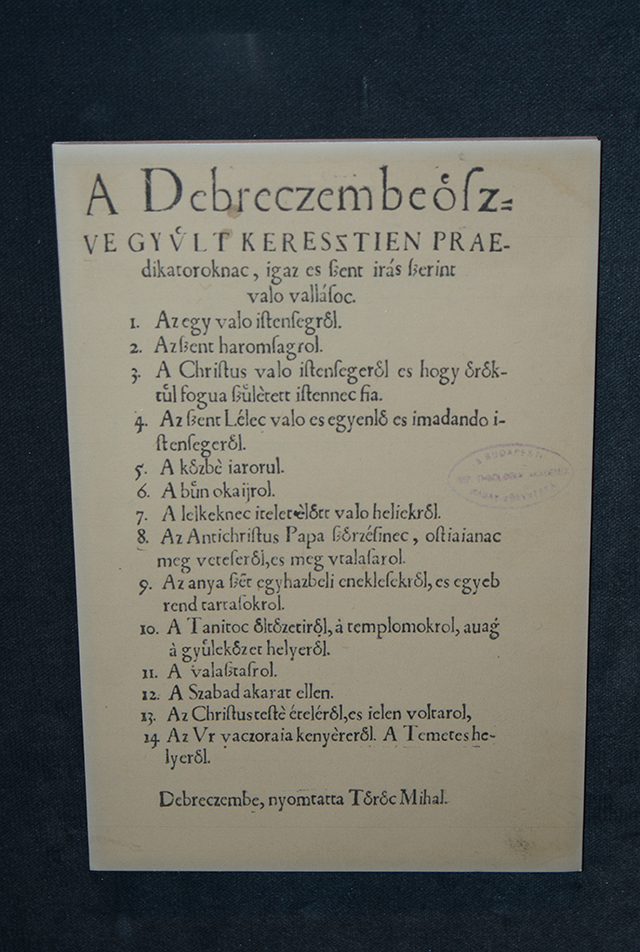 A Debreczembeőſz⸗
VE GYV̊LT KERESZTIEN PRAE-
dikatoroknac, igaz es ßent irás ßerint
valo valláſoc.
1. Az egy valo iſtenſegről.
2. Az ßent haromſagrol.
3. A Chriſtus valo iſtenſegeről es hogy őrők-
tůl fogua ßůlètett iſtennec fia.
4. Az ßent Lélec valo es egyenlő es imadando i-
ſtenſegeről.
5. A kőzbè iarorul.
6. A bůn okaijrol.
7. A lelkeknec itelet előtt valo heliekről.
8. Az Antichriſtus Papa ßőrzéſinec, oſtiaianac
meg veteſeről, es meg vtalaſarol.
9. Az anya ßēt egyhazbeli enekleſekről, es egyeb
rend tartaſokrol.
10. A Tanitoc őltőzetiről, à templomokrol, auag
à gyůlekőzet helyeről.
11. A valaßtaſrol.
12. A Szabad akarat ellen.
13. Az Chriſtus teſtè ételéről, es ielen voltarol,
14 Az Vr vaczoraia kenyèreről. A Temetes he-
lyeről.
Debreczembe, nyomtatta Tőrőc Mihal.
A BUDAPESTI